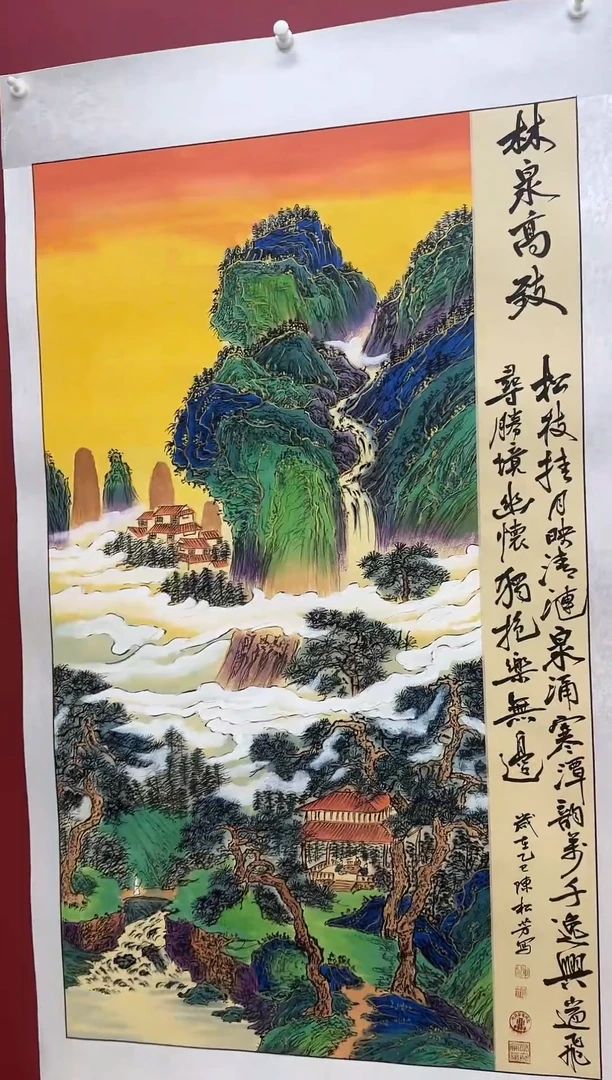 林泉高致
松枝挂月映清漣泉涌寒潭韵萬千逸興遄飛
尋勝境幽懷獨抱樂無邊
歲在乙巳陳松芳寫